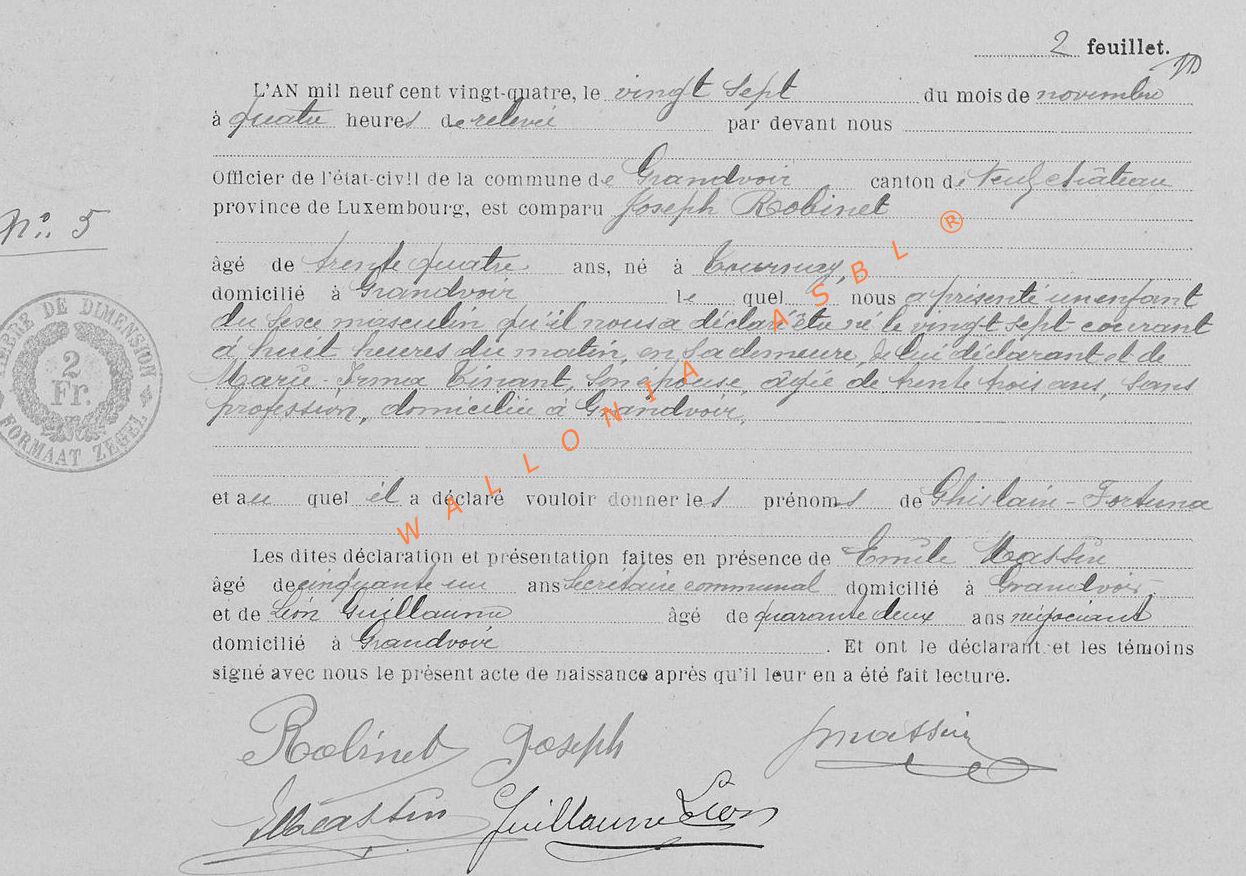 2 feuillet.
L'AN mil neuf cent vingt-quatre, le vingt sept du mois de novembre
à quatre heures de relevée par devant nous
Officier de l'état-civil de la commune de Grandvoir canton de Neufchâteau
province de Luxembourg, est comparu Joseph Robinet
N°. 5
âgé de trente quatre ans, né à Tournay,
domicilié à Grandvoir lequel nous a présenté un enfant
du sexe masculin qu'il nous a déclaré être né le vingt sept courant
à huit heures du matin, en sa demeure, de lui déclarant et de
Marie-Irma Tinant, son épouse, âgée de trente trois ans, sans
profession, domiciliée à Grandvoir,
et au quel il a déclaré vouloir donner les prénoms de Ghislain-Fortuna
Les dites déclaration et présentation faites en présence de Emile Massin
âgé de cinquante un ans secrétaire communal domicilié à Grandvoir,
et de Léon Guillaume âgé de quarante deux ans négociant
domicilié à Grandvoir. Et ont le déclarant et les témoins
signé avec nous le présent acte de naissance après qu'il leur en a été fait lecture.
Robinet Joseph JMassin
EMassin Guillaume Léon
TIMBRE DE DIMENSION
2
Fr.
FORMAAT ZEGEL
WALLONIA ASBL ®